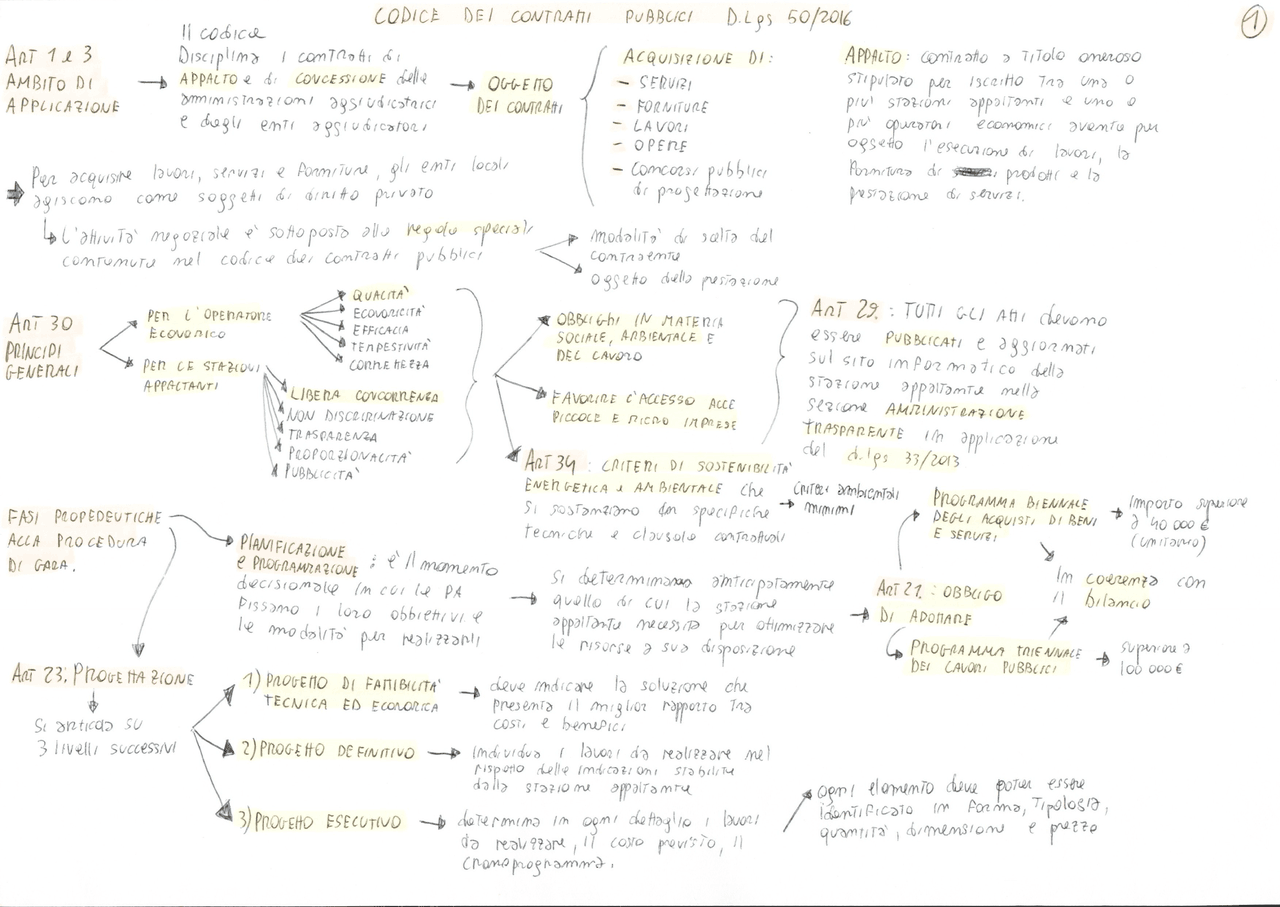 CODICE DEI CONTRATTI PUBBLICI D.Lgs 50/2016
1
ART 1 e 3
AMBITO DI
APPLICAZIONE
Il codice
Disciplina i contratti di
APPALTO e di CONCESSIONE delle
amministrazioni aggiudicatrici
e degli enti aggiudicatori
OGGETTO
DEI CONTRATTI
ACQUISIZIONE DI:
- SERVIZI
- FORNITURE
- LAVORI
- OPERE
- Concorsi pubblici
di progettazione
APPALTO: contratto a titolo oneroso
stipulato per iscritto tra una o
più stazioni appaltanti e uno o
più operatori economici avente per
oggetto l'esecuzione di lavori, la
fornitura di prodotti e la
prestazione di servizi.
Per acquisire lavori, servizi e forniture, gli enti locali
agiscono come soggetti di diritto privato
L'attività negoziale è sottoposta alle regole speciali
contenute nel codice dei contratti pubblici
modalità di scelta del
contraente
oggetto della prestazione
ART 30
PRINCIPI
GENERALI
PER L'OPERATORE
ECONOMICO
QUALITA'
ECONOMICITA'
EFFICACIA
TEMPESTIVITA'
CORRETTEZZA
PER LE STAZIONI
APPALTANTI
LIBERA CONCORRENZA
NON DISCRIMINAZIONE
TRASPARENZA
PROPORZIONALITA'
PUBBLICITA'
OBBLIGHI IN MATERIA
SOCIALE, AMBIENTALE E
DEL LAVORO
FAVORIRE L'ACCESSO ALLE
PICCOLE E MICRO IMPRESE
ART 34: CRITERI DI SOSTENIBILITA'
ENERGETICA e AMBIENTALE che
si sostanziano in specifiche
tecniche e clausole contrattuali
criteri ambientali
minimi
ART 29: TUTTI GLI ATTI devono
essere PUBBLICATI e aggiornati
sul sito informatico della
stazione appaltante nella
sezione AMMINISTRAZIONE
TRASPARENTE in applicazione
del d.lgs 33/2013
FASI PROPEDEUTICHE
ALLA PROCEDURA
DI GARA.
PIANIFICAZIONE
e PROGRAMMAZIONE: è il momento
decisionale in cui le PA
fissano i loro obbiettivi e
le modalità per realizzarli
si determinano anticipatamente
quello di cui la stazione
appaltante necessita per ottimizzare
le risorse a sua disposizione
ART 21: OBBLIGO
DI ADOTTARE
PROGRAMMA BIENNALE
DEGLI ACQUISTI DI BENI
E SERVIZI
importo superiore
a 40 000 €
(unitario)
In coerenza con
il bilancio
PROGRAMMA TRIENNALE
DEI LAVORI PUBBLICI
superiore a
100 000 €
ART 23: PROGETTAZIONE
Si articola su
3 livelli successivi
1) PROGETTO DI FATTIBILITA'
TECNICA ED ECONOMICA
deve indicare la soluzione che
presenta il miglior rapporto tra
costi e benefici
2) PROGETTO DEFINITIVO
individua i lavori da realizzare nel
rispetto delle indicazioni stabilite
dalla stazione appaltante
3) PROGETTO ESECUTIVO
determina in ogni dettaglio i lavori
da realizzare, il costo previsto, il
cronoprogramma.
ogni elemento deve poter essere
identificato in forma, tipologia,
quantità, dimensione e prezzo